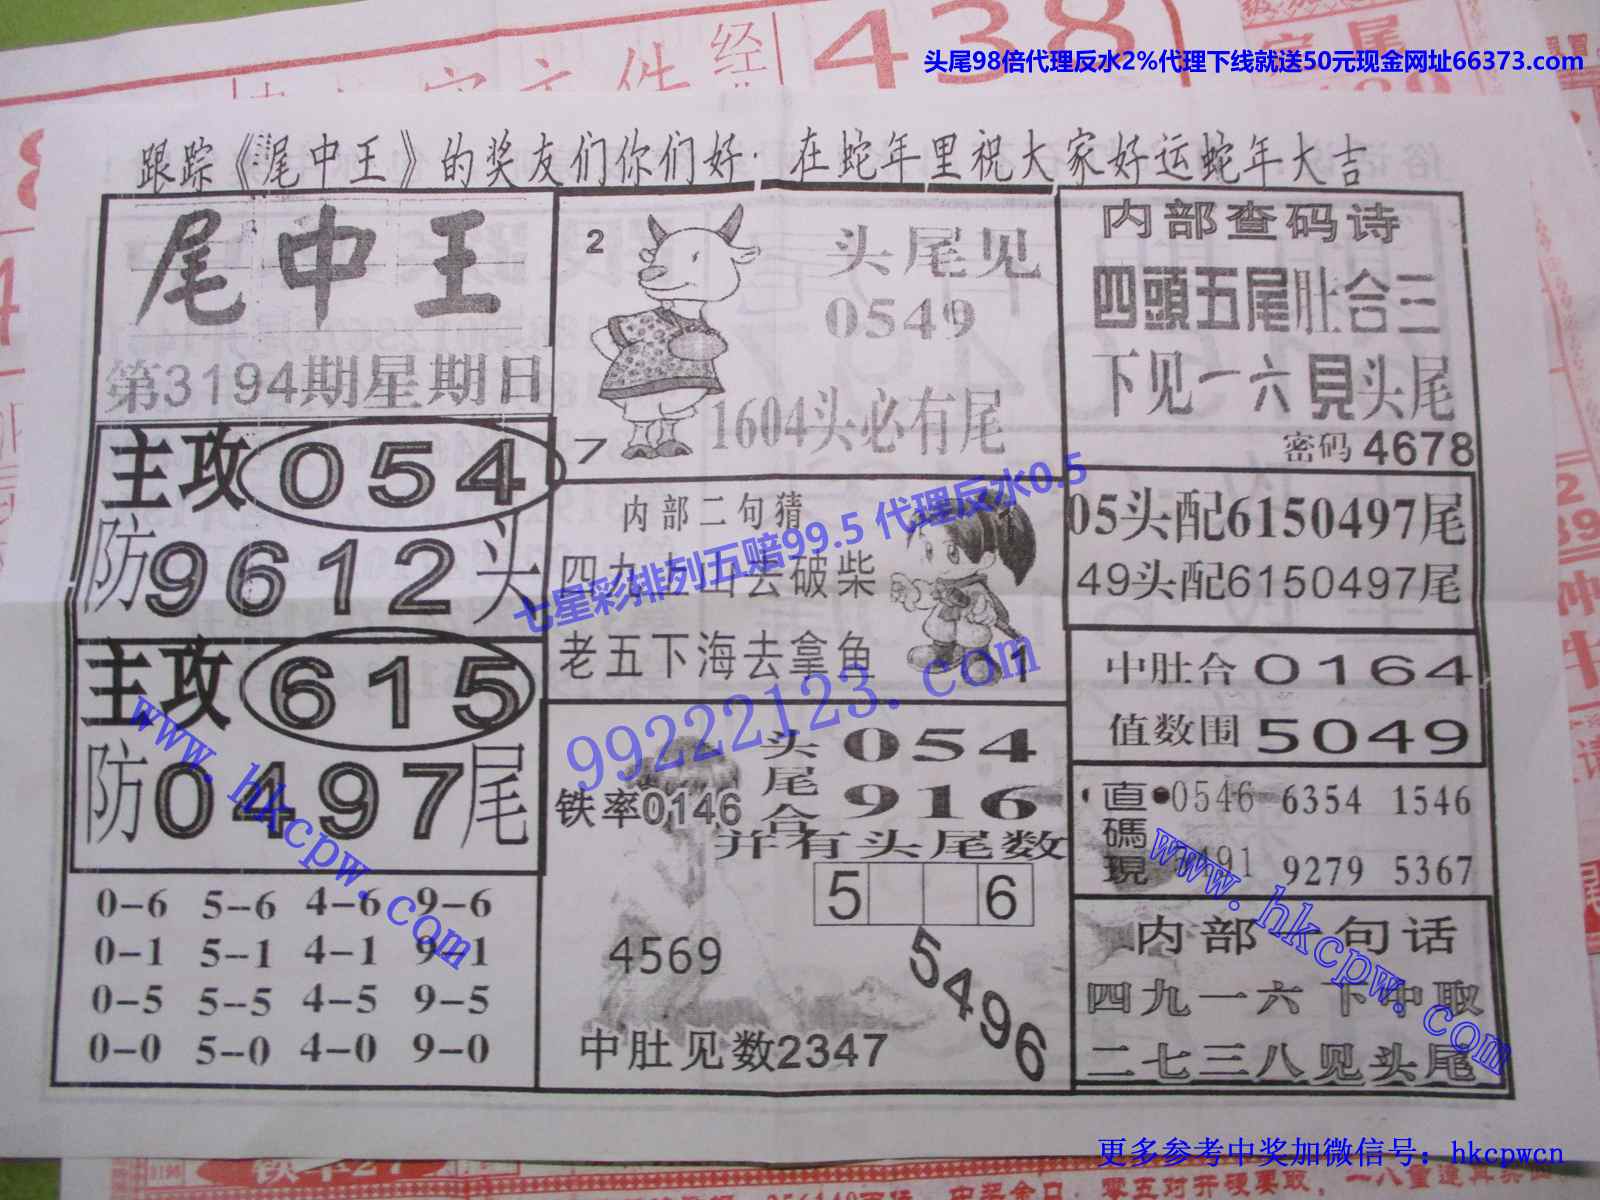 经
438
头尾98倍代理反水2%代理下线就送50元现金网址66373.com
跟踪《尾中王》的奖友们你们好·在蛇年里祝大家好运蛇年大吉
尾中王
第3194期星期日
主攻054
防9612头
主攻615
防0497尾
0-6 5--6 4-6 9-6
0-1 5-1 4-1 9-1
0-5 5-5 4-5 9-5
0-0 5-0 4-0 9-0
2
头尾见
0549
1604头必有尾
7
内部二句猜
四九上山去破柴
老五下海去拿鱼
01
头尾合
054
916
铁率0146
并有头尾数
5 6
4569
5496
中肚见数2347
内部查码诗
四頭五尾肚合三
下见一六見头尾
密码4678
05头配6150497尾
49头配6150497尾
中肚合0164
值数围5049
直碼現
0546 6354 1546
9279 5367
内部一句话
四九一六下中取
二七三八见头尾
七星彩排列五赔99.5 代理反水0.5
99222123.com
www.hkcpw.com
www.hkcpw.com
更多参考中奖加微信号：hkcpwcn